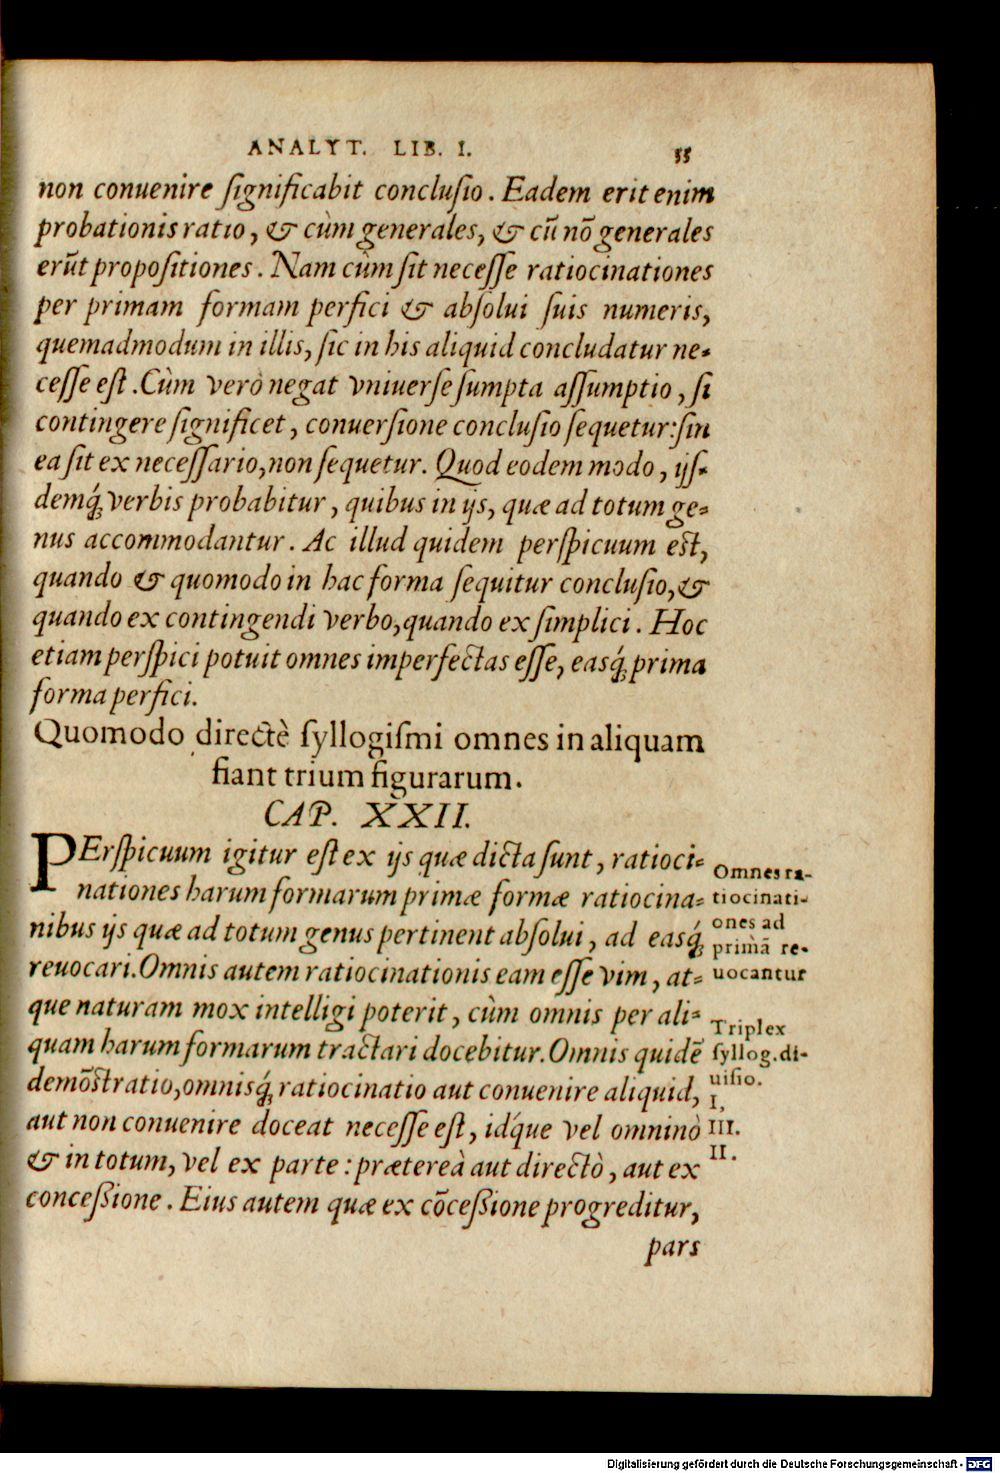 ANALYT. LIB. I. 55
non conuenire ſignificabit concluſio. Eadem erit enim
probationis ratio, & cùm generales, & cū nō generales
erūt propoſitiones. Nam cùm ſit neceſſe ratiocinationes
per primam formam perfici & abſolui ſuis numeris,
quemadmodum in illis, ſic in his aliquid concludatur ne-
ceſſe eſt. Cùm verò negat vniuerſe ſumpta aſſumptio, ſi
contingere ſignificet, conuerſione concluſio ſequetur: ſin
ea ſit ex neceſſario, non ſequetur. Quod eodem modo, ijſ-
demq́; verbis probabitur, quibus in ijs, quæ ad totum ge-
nus accommodantur. Ac illud quidem perſpicuum eſt,
quando & quomodo in hac forma ſequitur concluſio, &
quando ex contingendi verbo, quando ex ſimplici. Hoc
etiam perſpici potuit omnes imperfectas eſſe, easq́; prima
forma perfici.
Quomodo directè ſyllogiſmi omnes in aliquam
fiant trium figurarum.
CAP. XXII.
PErſpicuum igitur eſt ex ijs quæ dicta ſunt, ratioci-
nationes harum formarum primæ formæ ratiocina-
nibus ijs quæ ad totum genus pertinent abſolui, ad easq́;
reuocari. Omnis autem ratiocinationis eam eſſe vim, at-
que naturam mox intelligi poterit, cùm omnis per ali-
quam harum formarum tractari docebitur. Omnis quidē
demōſtratio, omnisq́; ratiocinatio aut conuenire aliquid,
aut non conuenire doceat neceſſe eſt, id́que vel omninò
& in totum, vel ex parte: prætereà aut directò, aut ex
conceßione. Eius autem quæ ex cōceßione progreditur,
pars
Omnes ra-
tiocinati-
ones ad
primā re-
uocantur
Triplex
ſyllog. di-
uiſio.
I,
III.
II.
Digitalisierung gefördert durch die Deutsche Forschungsgemeinschaft - DFG